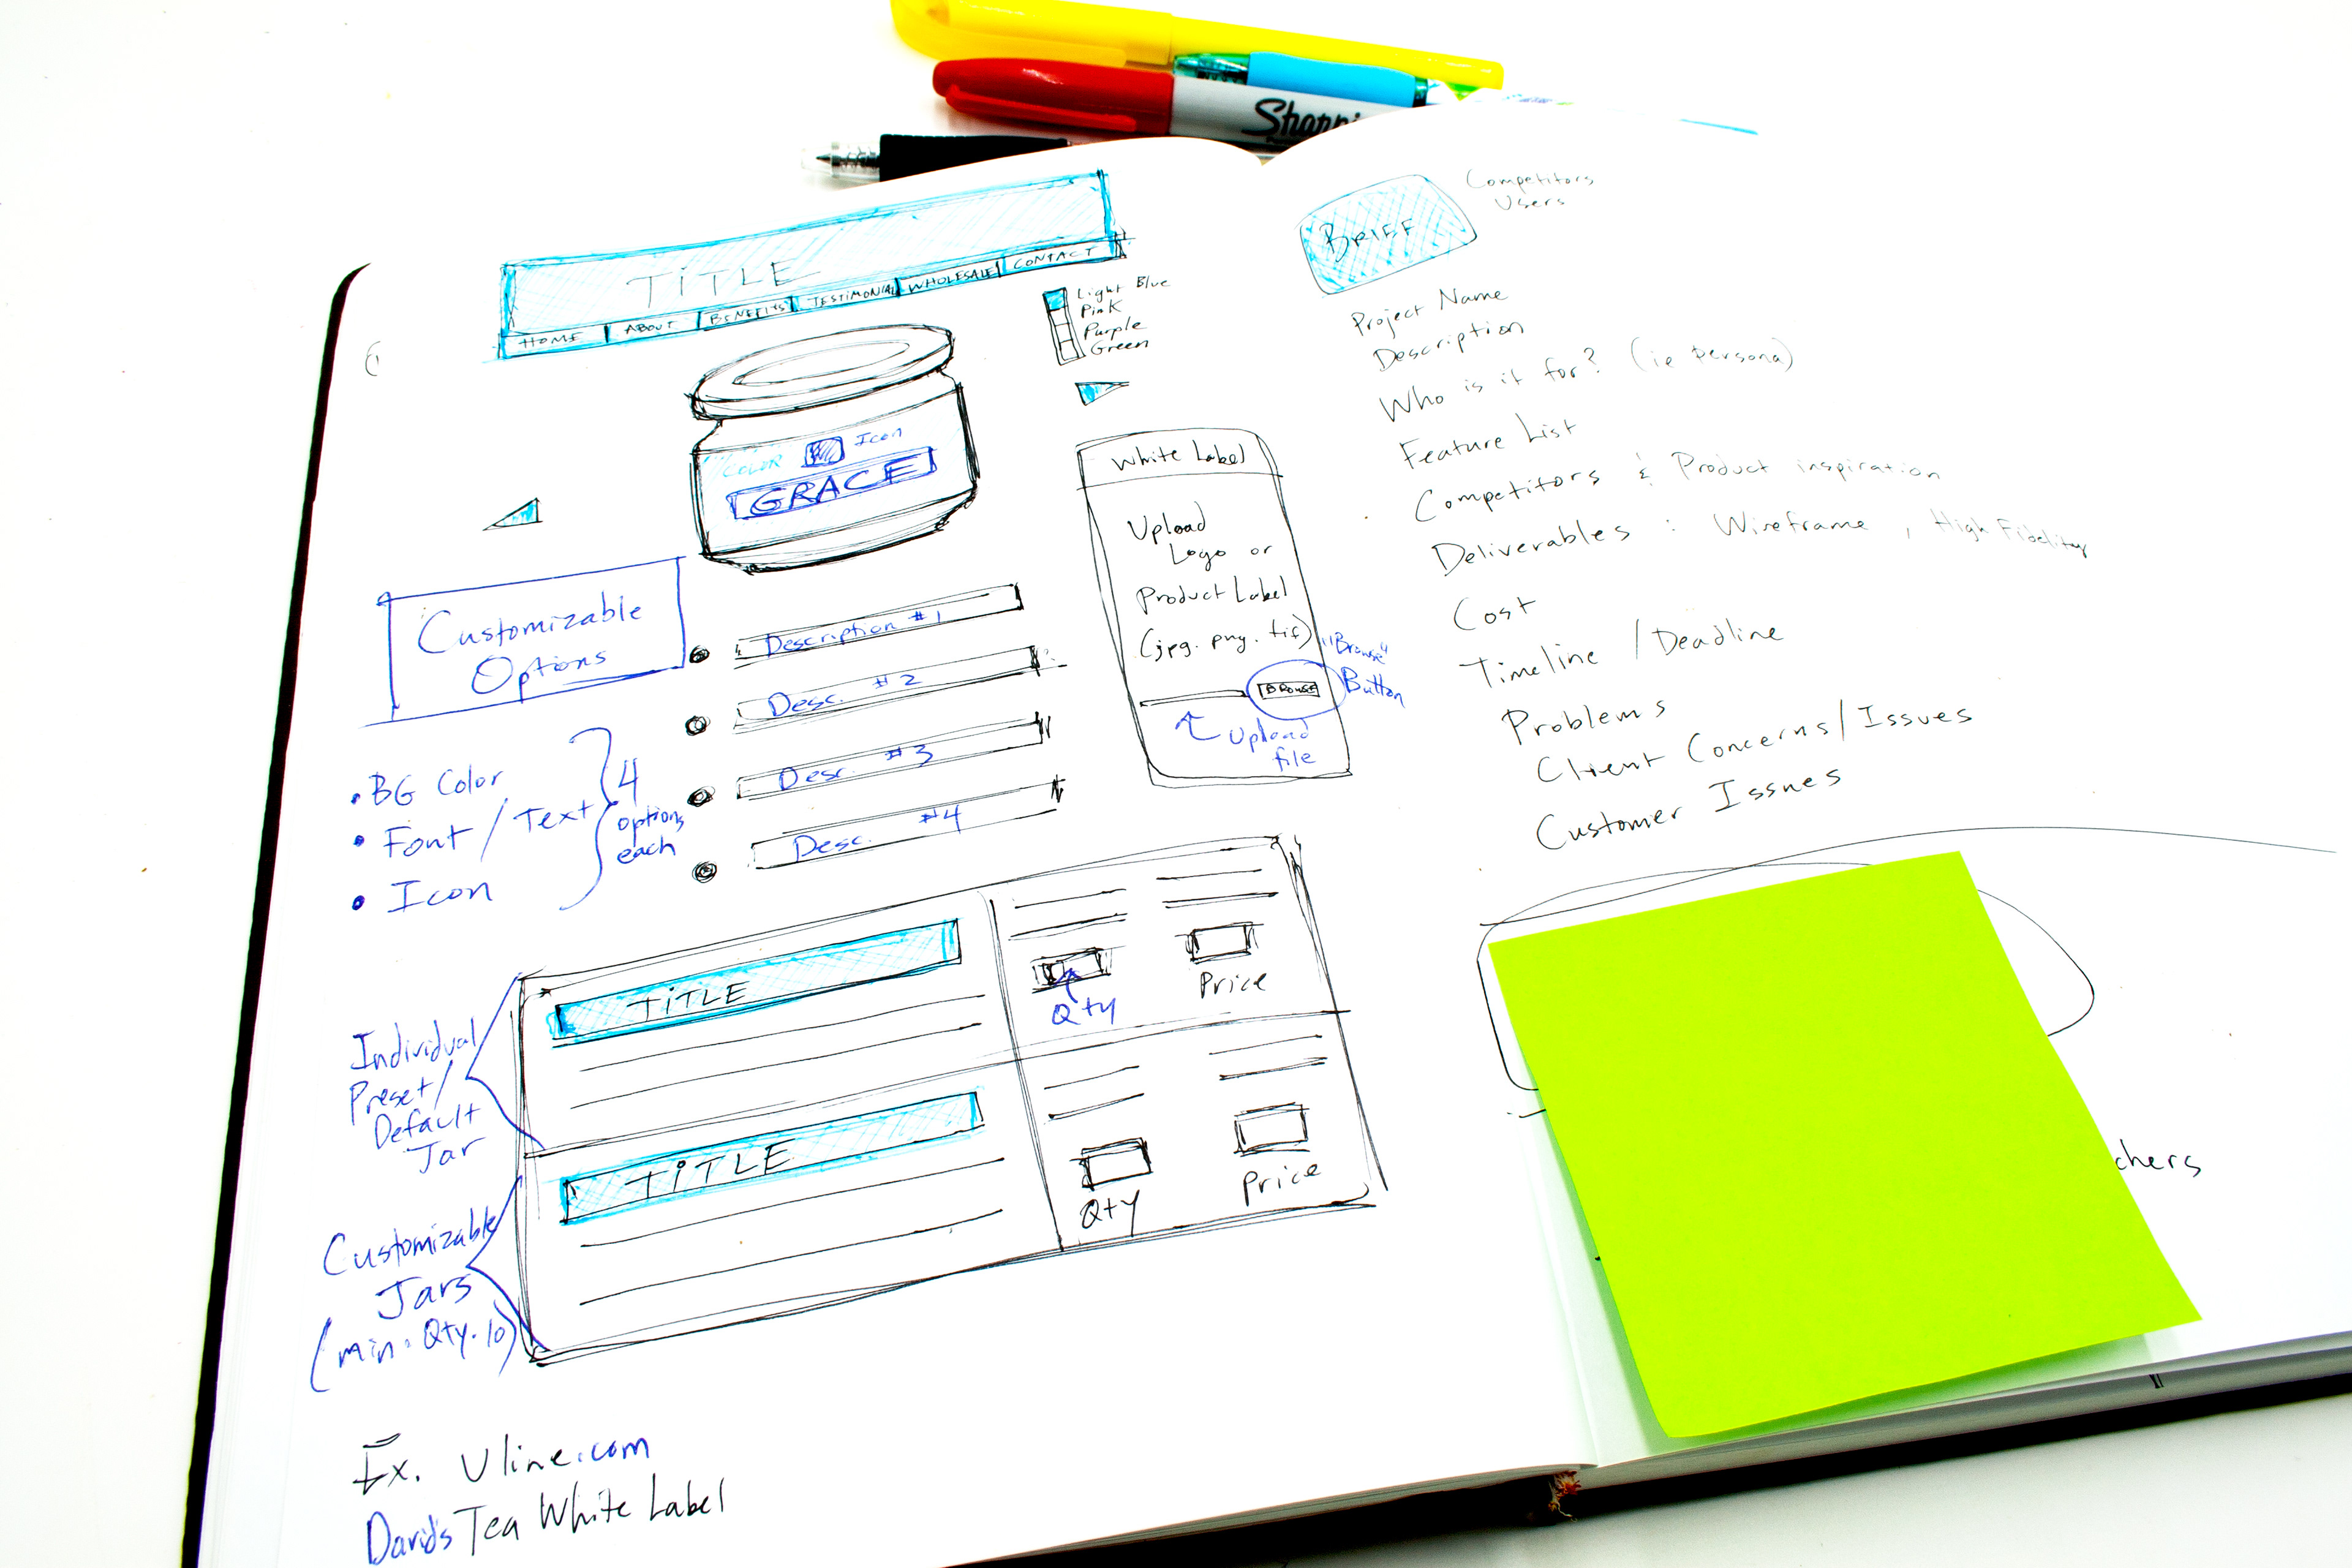 Sharpi
TITLE
HOME ABOUT BENEFITS TESTIMONIAL WHOLESALE CONTACT
Light Blue
Pink
Purple
Green
COLOR Icon
GRACE
Customizable
Options
• BG Color
• Font / Text
• Icon
4
options
each
Description #1
Desc. #2
Desc. #3
Desc. #4
White Label
Upload
Logo or
Product Label
(jpg. png. tif)
BROWSE
"Browse"
Button
Upload
file
Individual
Preset/
Default
Jar
TITLE
Qty
Price
Customizable
Jars
(min. Qty. 10)
TITLE
Qty
Price
Ex. Uline.com
Davids Tea White Label
BRIEF
Competitors
Users
Project Name
Description
Who is it for? (ie Persona)
Feature List
Competitors & Product inspiration
Deliverables : Wireframe, High Fidelity
Cost
Timeline / Deadline
Problems
Client Concerns/Issues
Customer Issues
chers